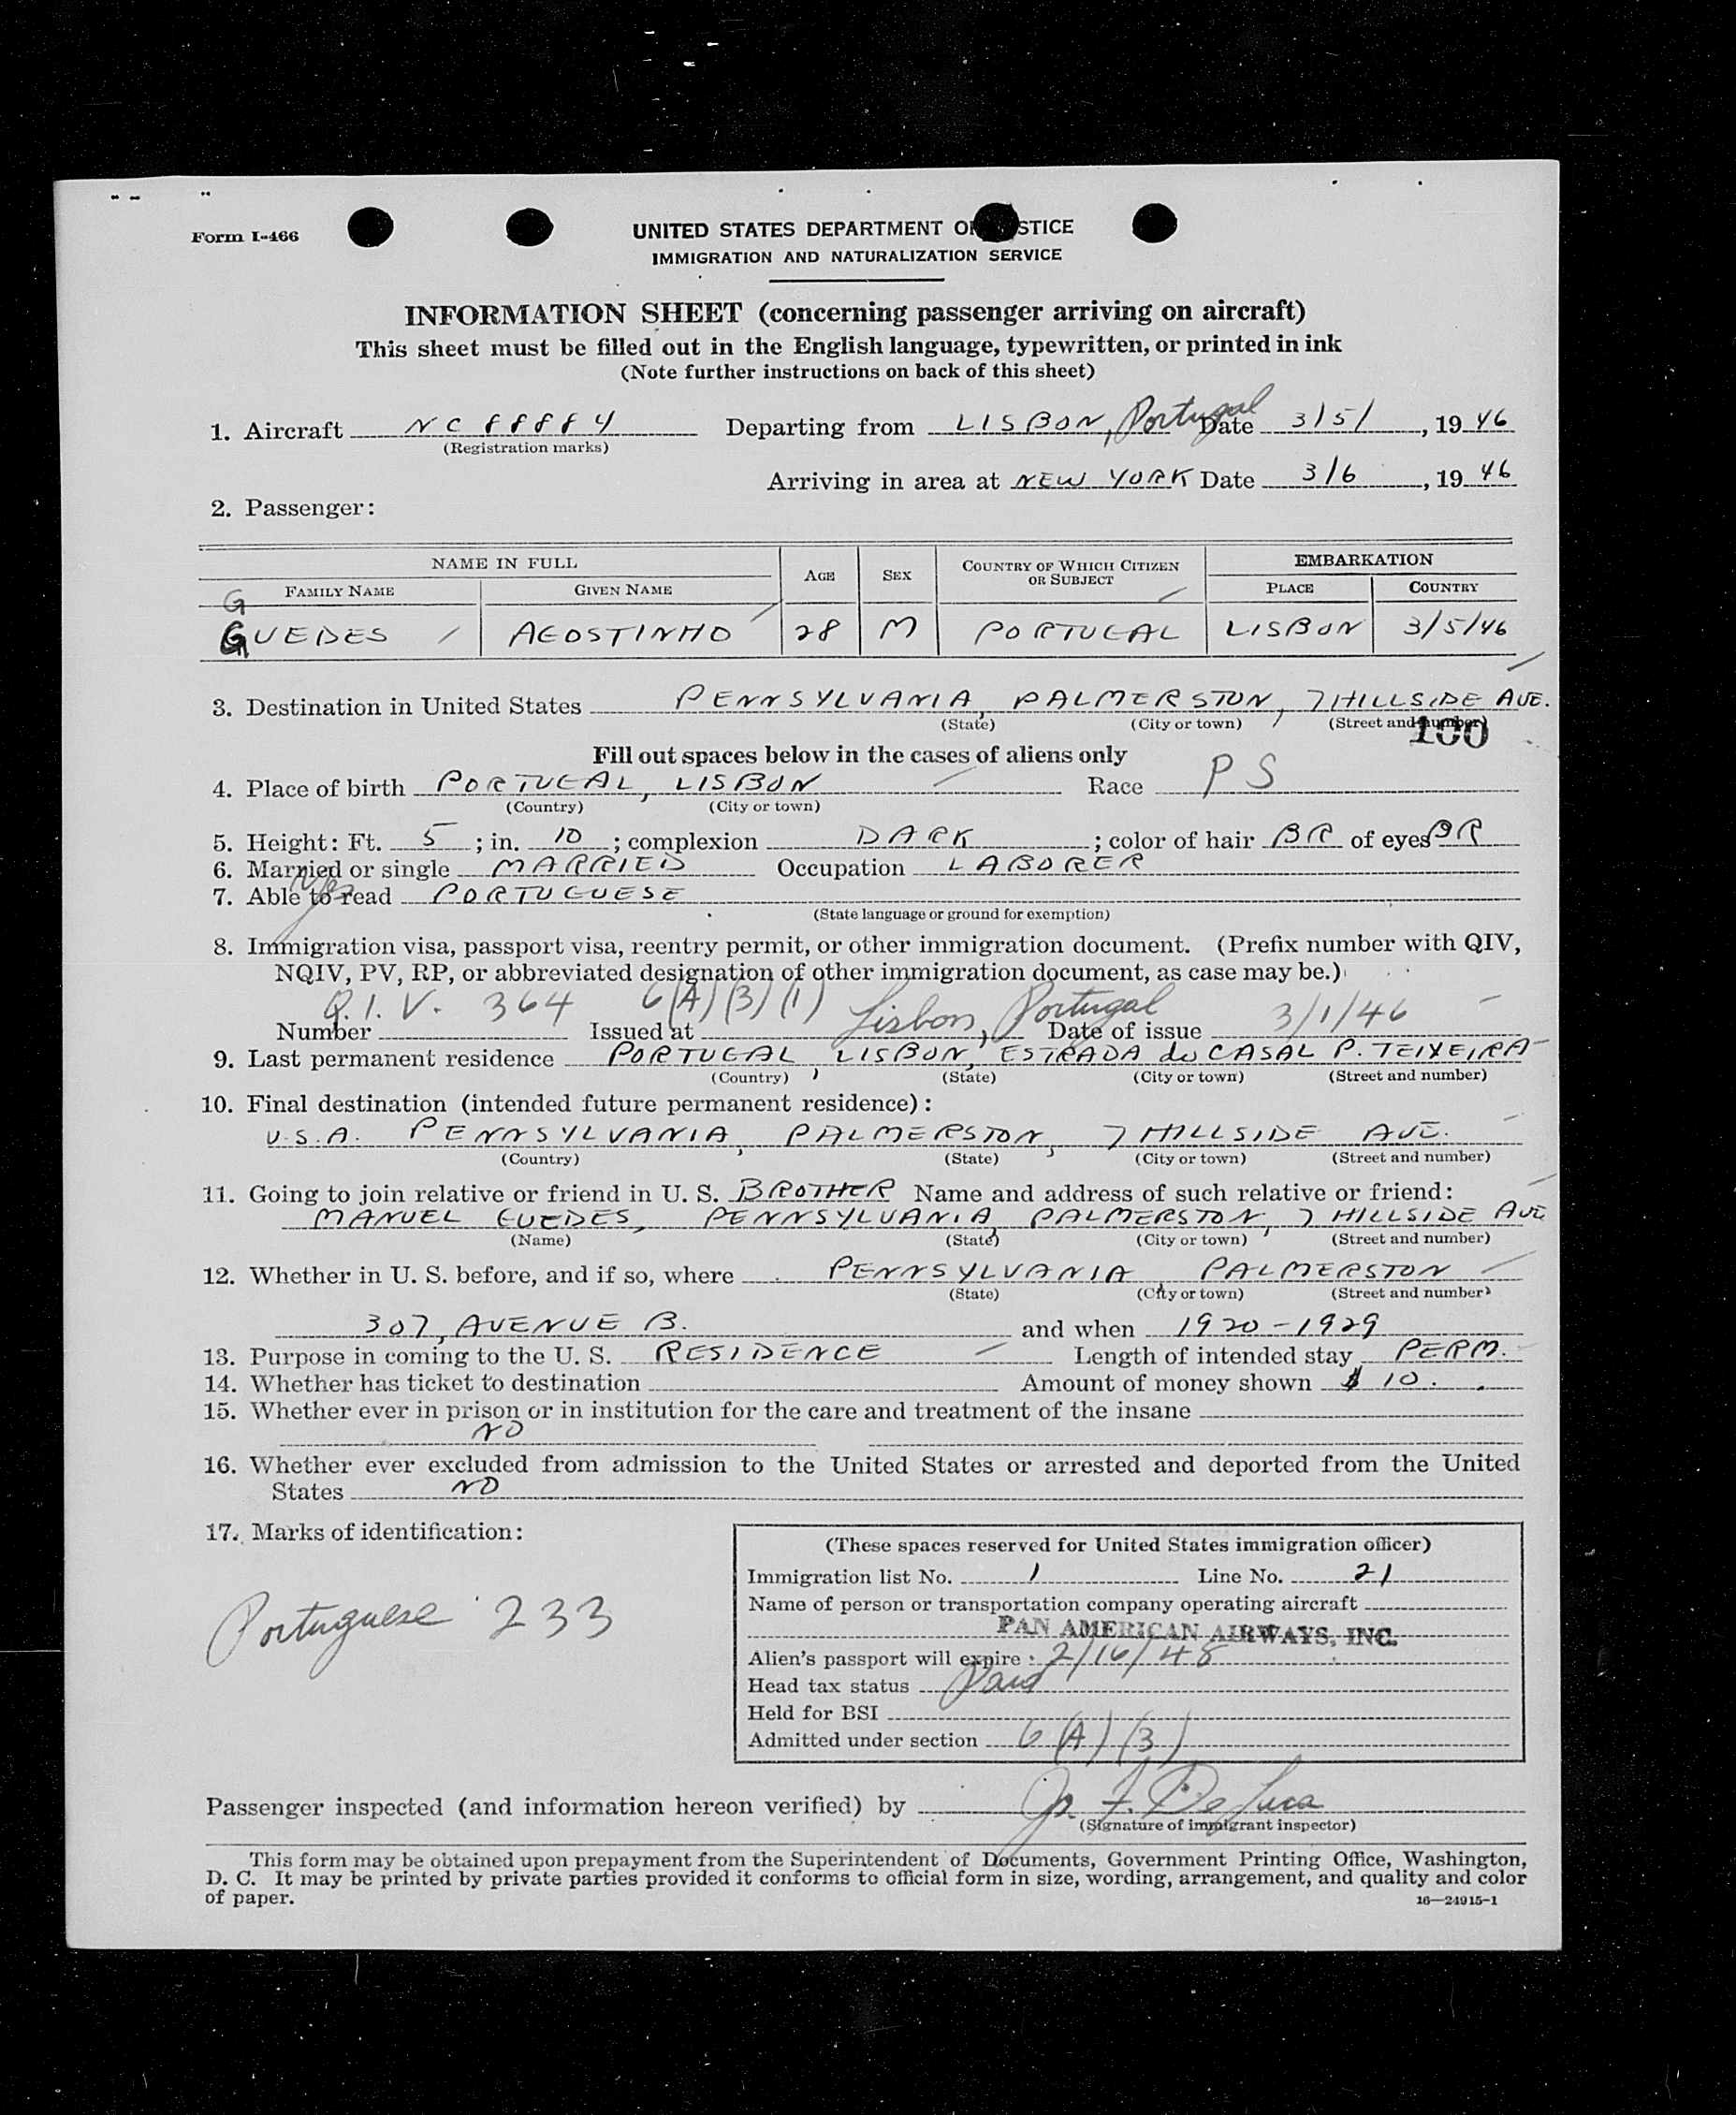 Form I-466
UNITED STATES DEPARTMENT OF JUSTICE
IMMIGRATION AND NATURALIZATION SERVICE
INFORMATION SHEET (concerning passenger arriving on aircraft)
This sheet must be filled out in the English language, typewritten, or printed in ink
(Note further instructions on back of this sheet)
1. Aircraft NC 88884 Departing from LISBON, Portugal Date 3/5/, 1946
(Registration marks)
Arriving in area at NEW YORK Date 3/6, 1946
2. Passenger:
NAME IN FULL AGE SEX COUNTRY OF WHICH CITIZEN OR SUBJECT EMBARKATION
FAMILY NAME GIVEN NAME PLACE COUNTRY
G
GUEDES AGOSTINHO 28 M PORTUGAL LISBON 3/5/46
3. Destination in United States PENNSYLVANIA, PALMERSTON, 7 HILLSIDE AVE.
(State) (City or town) (Street and number)
100
Fill out spaces below in the cases of aliens only
4. Place of birth PORTUGAL, LISBON Race PS
(Country) (City or town)
5. Height: Ft. 5; in. 10; complexion DARK; color of hair BR of eyes BR
6. Married or single MARRIED Occupation LABORER
7. Able to read Yes PORTUGUESE
(State language or ground for exemption)
8. Immigration visa, passport visa, reentry permit, or other immigration document. (Prefix number with QIV,
NQIV, PV, RP, or abbreviated designation of other immigration document, as case may be.)
Number Q.I.V. 364 6(A)(3)(1) Issued at Lisbon, Portugal Date of issue 3/1/46
9. Last permanent residence PORTUGAL, LISBON, ESTRADA do CASAL P. TEIXEIRA
(Country) (State) (City or town) (Street and number)
10. Final destination (intended future permanent residence):
U.S.A. PENNSYLVANIA, PALMERSTON, 7 HILLSIDE AVE.
(Country) (State) (City or town) (Street and number)
11. Going to join relative or friend in U. S. BROTHER Name and address of such relative or friend:
MANUEL GUEDES, PENNSYLVANIA, PALMERSTON, 7 HILLSIDE AVE
(Name) (State) (City or town) (Street and number)
12. Whether in U. S. before, and if so, where PENNSYLVANIA, PALMERSTON
(State) (City or town) (Street and number)
307, AVENUE B. and when 1920-1929
13. Purpose in coming to the U. S. RESIDENCE Length of intended stay PERM.
14. Whether has ticket to destination Amount of money shown $ 10.
15. Whether ever in prison or in institution for the care and treatment of the insane
NO
16. Whether ever excluded from admission to the United States or arrested and deported from the United
States NO
17. Marks of identification:
Portuguese 233
(These spaces reserved for United States immigration officer)
Immigration list No. 1 Line No. 21
Name of person or transportation company operating aircraft
PAN AMERICAN AIRWAYS, INC.
Alien's passport will expire 2/16/48
Head tax status Paid
Held for BSI
Admitted under section 6(A)(3)
Passenger inspected (and information hereon verified) by F. De Luca
(Signature of immigrant inspector)
This form may be obtained upon prepayment from the Superintendent of Documents, Government Printing Office, Washington,
D. C. It may be printed by private parties provided it conforms to official form in size, wording, arrangement, and quality and color
of paper.
16—24915-1